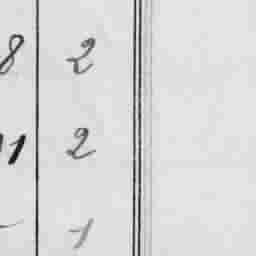 8 2
11 2
- -1